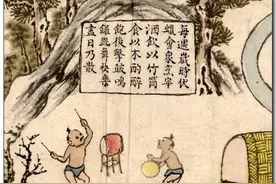 每遇歲時伏
臘會衆烹宰
酒飲以竹筒
食以木酌醉
飽後擊鼓鳴
鑼跳舞快樂
盡日乃散